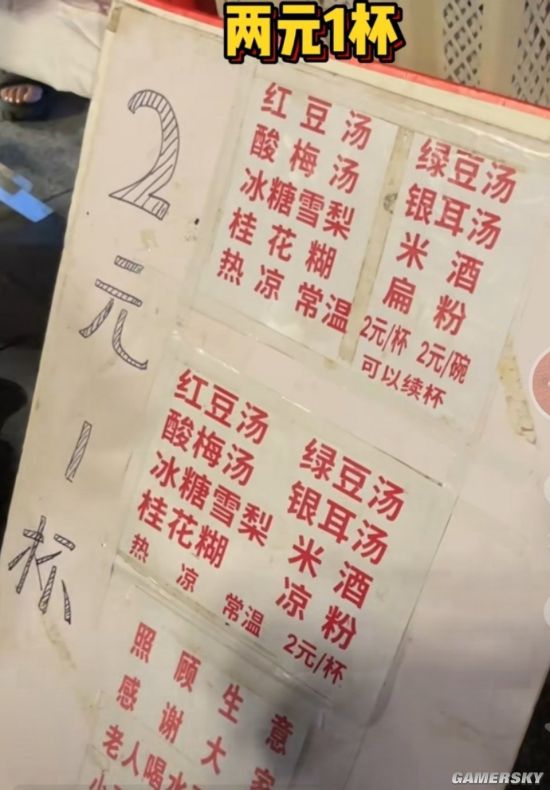 两元1杯
2元1杯
红豆汤
酸梅汤
冰糖雪梨
桂花糊
热凉常温
绿豆汤
银耳汤
米酒
扁粉
2元/杯 2元/碗
可以续杯
红豆汤
酸梅汤
冰糖雪梨
桂花糊
热凉常温
绿豆汤
银耳汤
米酒
凉粉
2元/杯
照顾生意
感谢大家
老人喝水
小
GAMERSKY